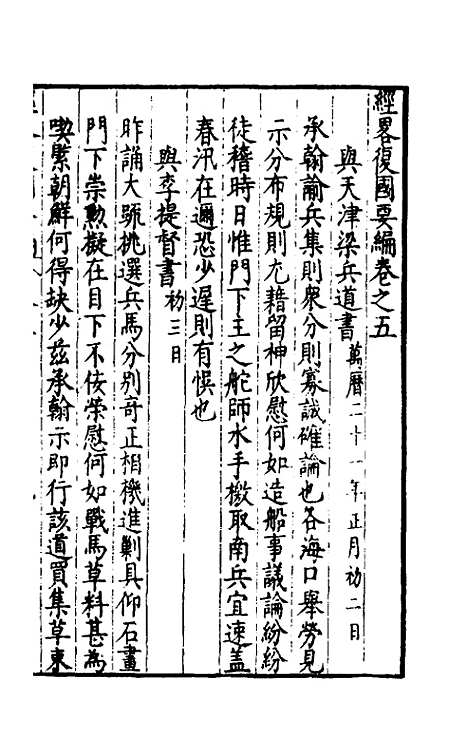 經畧復國要編卷之五
與天津梁兵道書萬曆二十一年正月初二日
承翰諭兵集則衆分則寡誠確論也各海口舉勞見
示分布規則尤藉留神欣慰何如造船事議論紛紛
徒稽時日惟門下主之舵師水手檄取南兵宜速蓋
春汛在邇恐少遲則有悞也
與李提督書初三日
昨誦大疏挑選兵馬分别奇正相機進剿具仰石畫
門下崇勲擬在目下不佞榮慰何如戰馬草料甚為
喫緊朝鮮何得缺少茲承翰示即行該道買集草束